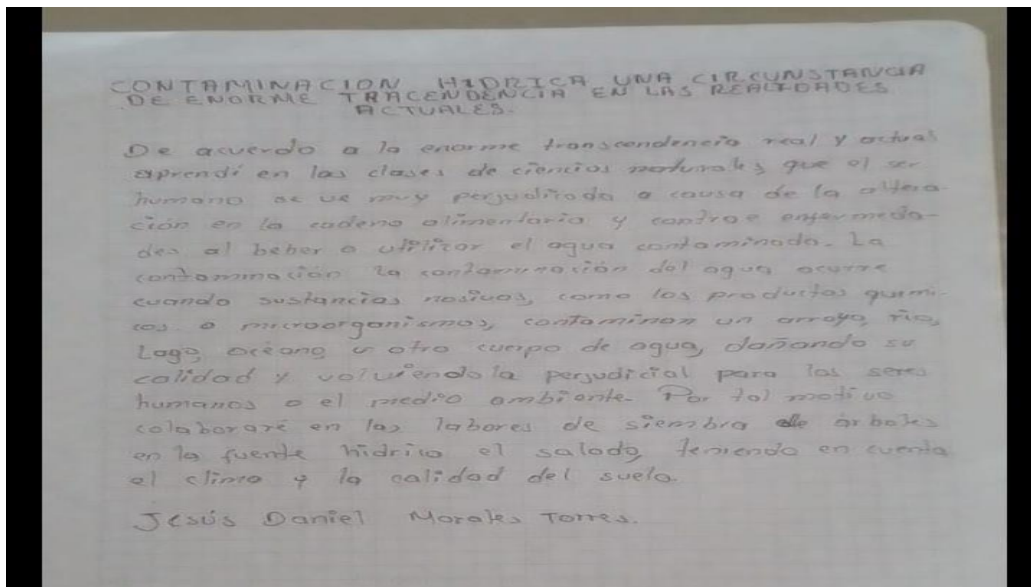 CONTAMINACION HIDRICA UNA CIRCUNSTANCIA
DE ENORME TRACENDENCIA EN LAS REALIDADES
ACTUALES.
De acuerdo a la enorme transcendencia real y actual
aprendí en las clases de ciencias naturales que el ser
humano se ve muy perjudicado a causa de la altera-
ción en la cadena alimentaria y contrae enfermeda-
des al beber o utilizar el agua contaminada. La
contaminación la contaminación del agua ocurre
cuando sustancias nosivas, como los productos quími-
cos o microorganismos, contaminan un arroyo, río,
Lago, océano u otro cuerpo de agua, dañando su
calidad y volviendola perjudicial para los seres
humanos o el medio ambiente. Por tal motivo
colaboraré en las labores de siembra de árboles
en la fuente hidrica el salado, teniendo en cuenta
el clima y la calidad del suelo.
Jesús Daniel Morales Torres.